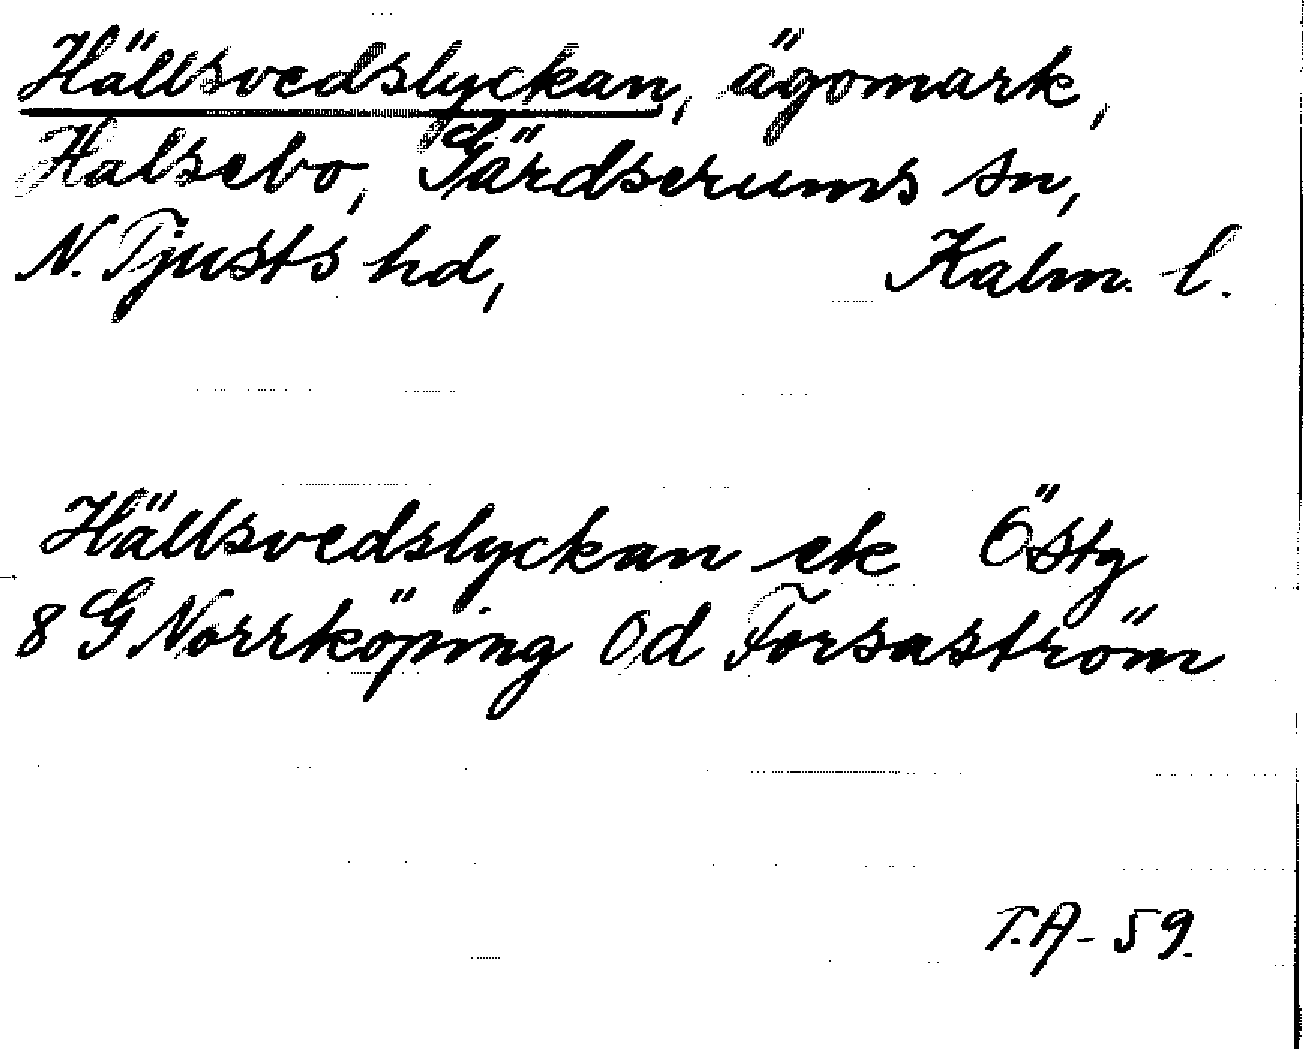 Hällsvedslyckan, ägomark,
Halsebo, Gärdserums sn,
N. Tjusts hd, Kalm. l.
Hällsvedslyckan ek Östg
8 G Norrköping Od Forsaström
T.A - 59.